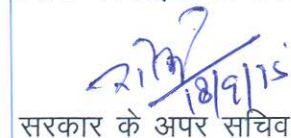 18/9/15
सरकार के अपर सचिव